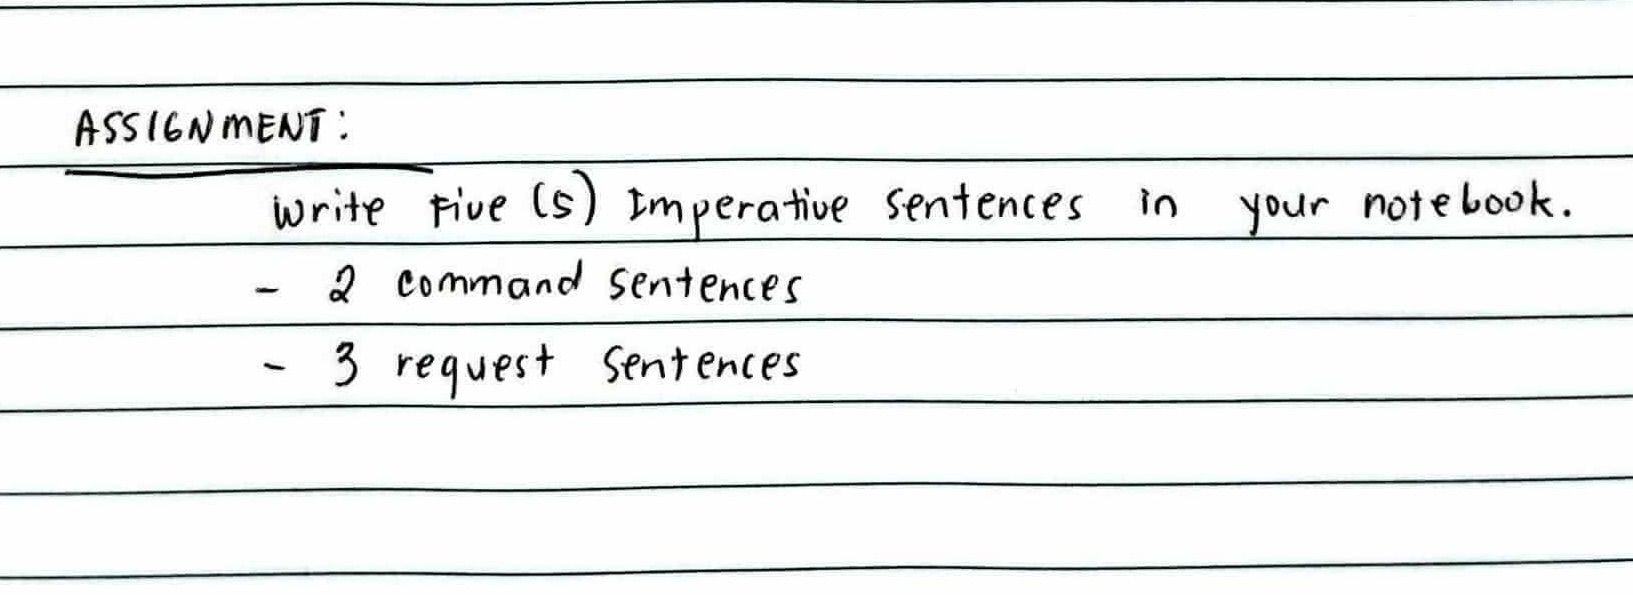 ASSIGNMENT:
Write Five (5) Imperative Sentences in your notebook.
- 2 command sentences
- 3 request sentences